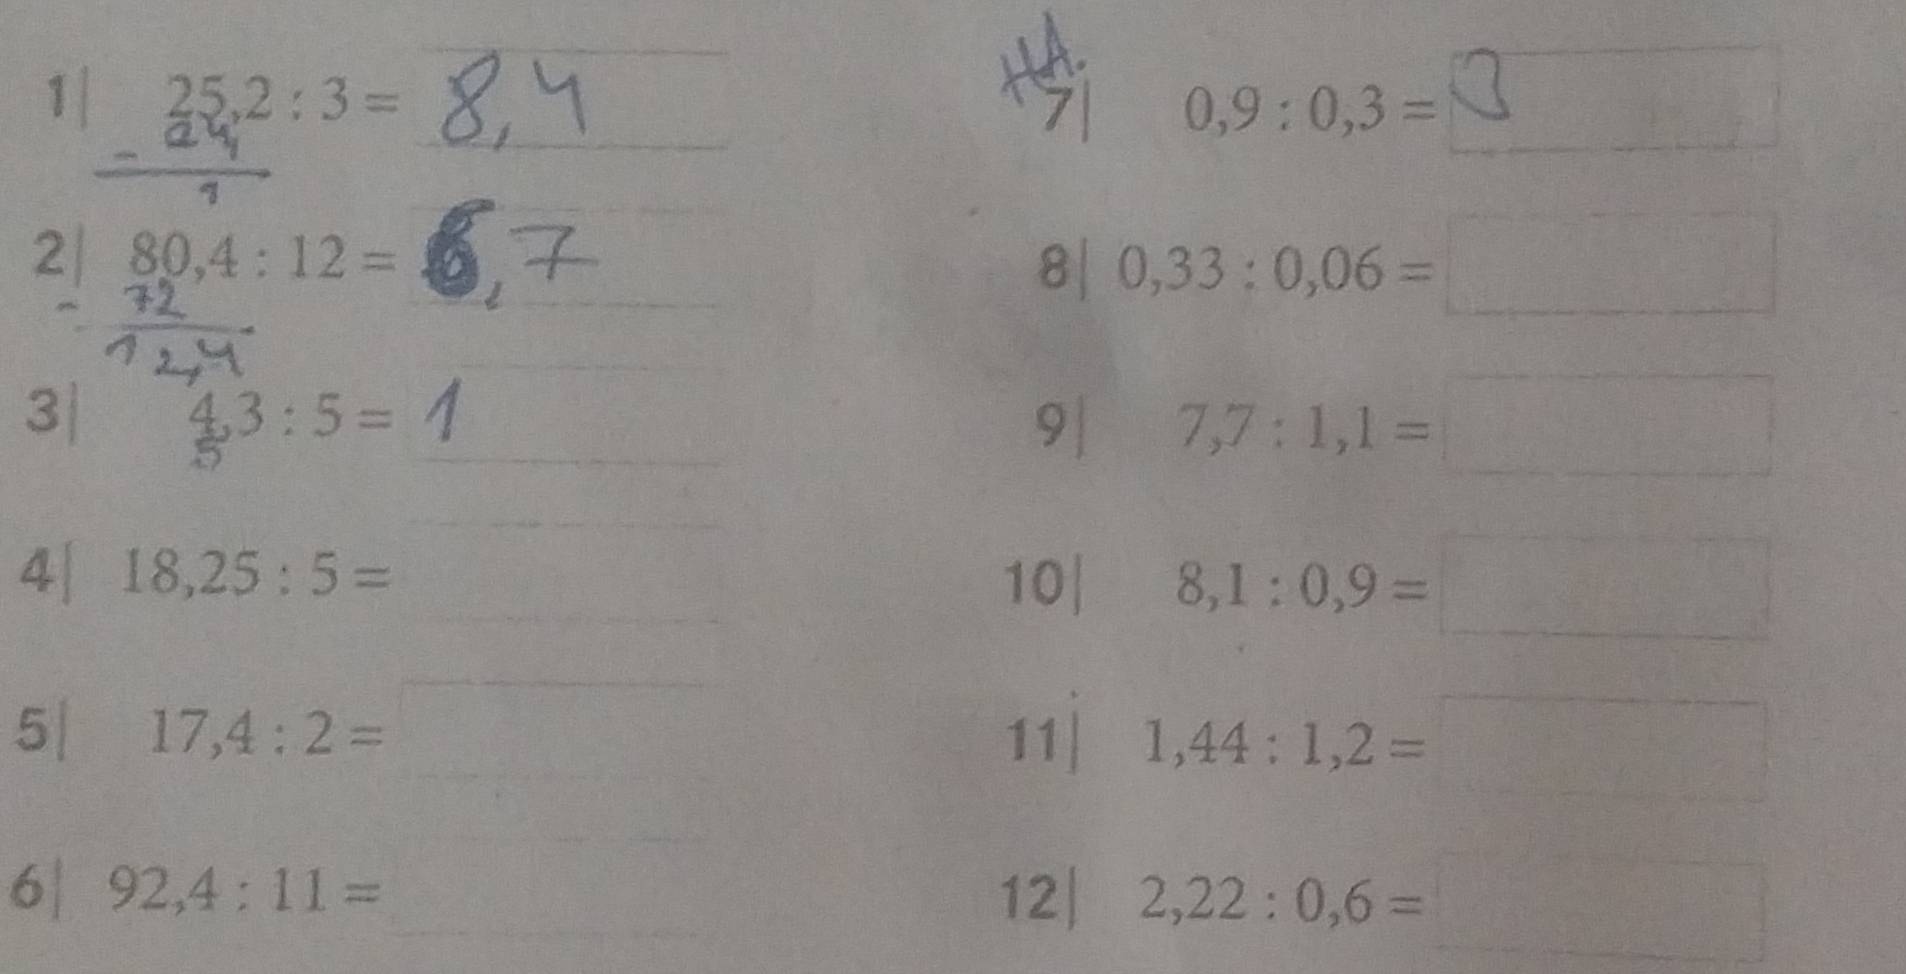 1| 25,2 : 3 = 8,4
- 24
1
2| 80,4 : 12 = 6,7
- 72
12,4
3| 4,3 : 5 = 1
5
4| 18,25 : 5 =
5| 17,4 : 2 =
6| 92,4 : 11 =
HA.
7| 0,9 : 0,3 = 3
8| 0,33 : 0,06 =
9| 7,7 : 1,1 =
10| 8,1 : 0,9 =
11| 1,44 : 1,2 =
12| 2,22 : 0,6 =